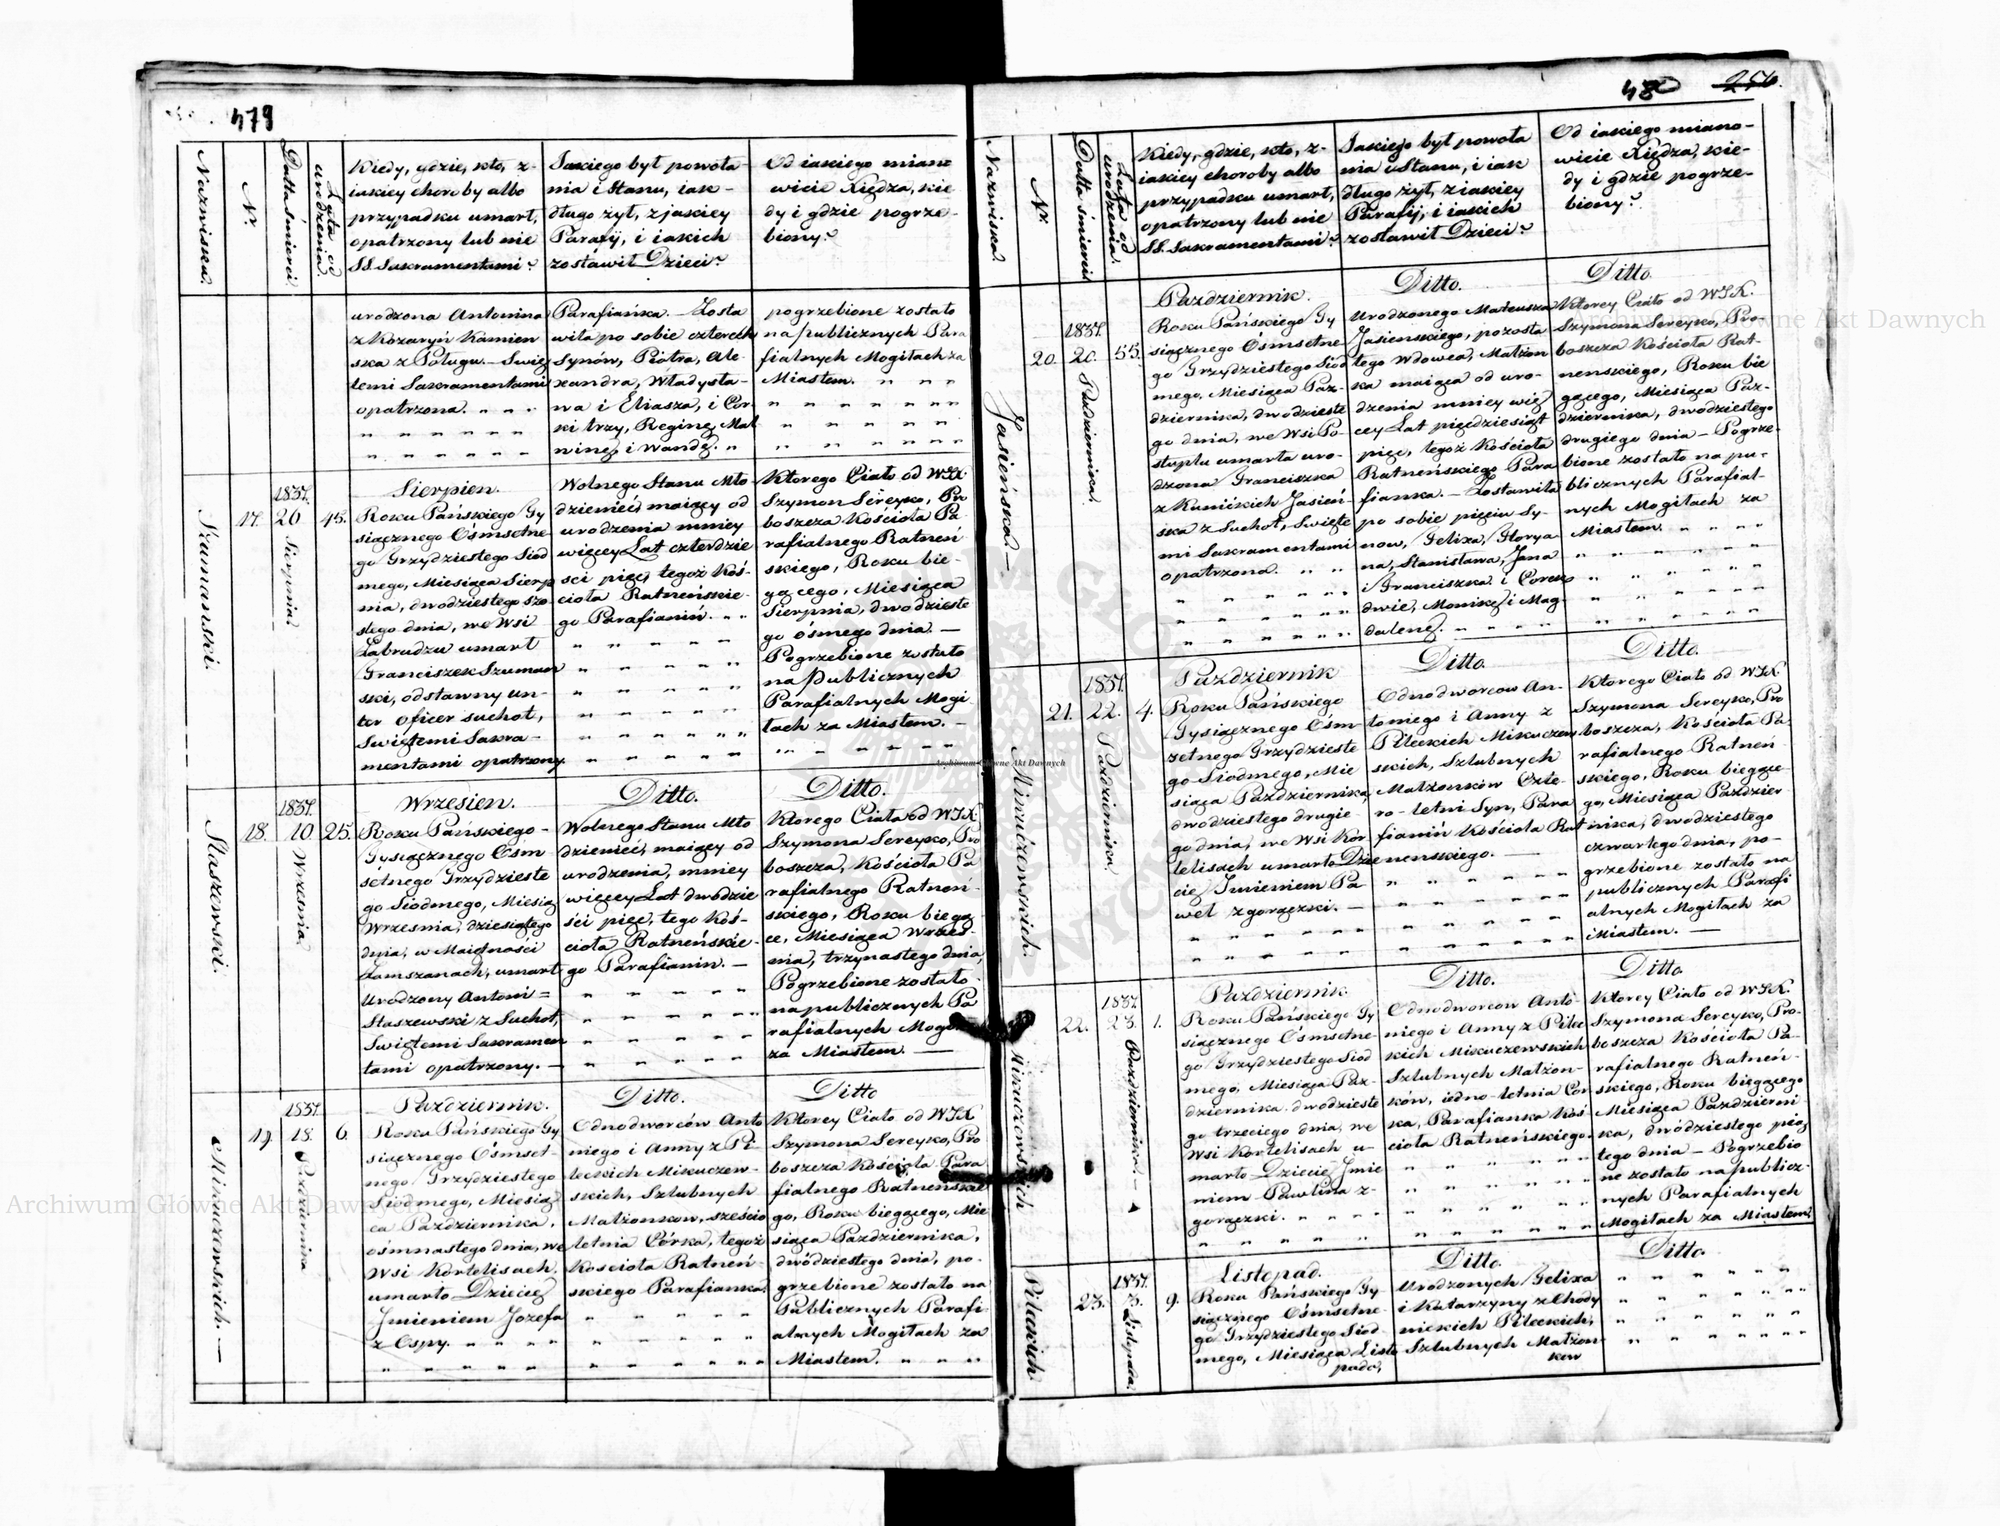 479
Nazwiska.
Nr.
Datta śmierci.
Lata od
urodzenia.
Kiedy, gdzie, kto, z-
iakiey choroby albo
przypadku umarł,
opatrzony lub nie
SS. Sakramentami?
Jakiego był powoła-
nia i Stanu, iak-
długo żył, z jakiey
Parafij, i iakich
zostawił Dzieci?
Od iakiego miano
wicie Xiędza, kie
dy i gdzie pogrze-
biony?
urodzona Antonina
z Kozaryń Kamien
ska z Poługu. - Swię
temi Sakramentami
opatrzona.
Parafianka. - Zosta
wiła po sobie czterech
Synów, Piotra, Ale-
xandra, Władysła-
wa i Eliasza, i Cor-
ki trzy, Reginę, Mal
winę, i Wandę.
pogrzebione zostało
na publicznych Para
fialnych Mogiłach za
Miastem.
Szumanski.
17.
1837.
26
Sierpnia.
45.
Sierpien.
Roku Pańskiego Ty
siącznego Ośmsetne-
go Trzydziestego Siod
mego, Miesiąca Sierp
nia, dwodziestego szo-
stego dnia, we Wsi
Zabrudzu umarł
Franciszek Szuman
ski, odstawny un-
ter Oficer suchot,
Swiętemi Sakra-
mentami opatrzony.
Wolnego Stanu Mło
dzieniec, maiący od
urodzenia mniey
więcey Lat czterdzie
sci pięc, tegoż Koś-
cioła Ratneńskie-
go Parafianin.
Ktorego Ciało od WJX.
Szymon Sereyko, Pro
boszcza Kościoła Pa-
rafialnego Ratneń
skiego, Roku bie-
gącego, Miesiąca
Sierpnia, dwodzieste
go ósmego dnia. -
Pogrzebione zostało
na Publicznych
Parafialnych Mogi
łach za Miastem. -
Staszewski.
18.
1837.
10
Wrzesnia.
25.
Wrzesien.
Roku Pańskiego -
Tysiącznego Osm
setnego Trzydzieste
go Siodmego, Miesią
Wrzesnia, dziesiątego
dnia, w Maiętności
Zamszanach, umarł
Urodzony Antoni =
Staszewski z Suchot,
Swiętemi Sakramen
tami opatrzony. -
Ditto.
Wolnego Stanu Mło
dzieniec, maiący od
urodzenia, mniey
więcey Lat dwodzie
ści pięc, tego Koś-
cioła Ratneńskie-
go Parafianin. -
Ditto.
Ktorego Ciało od WJX
Szymona Sereyko, Pro
boszcza, Kościoła Pa
rafialnego Ratneń-
skiego, Roku biegą-
ce, Miesiąca Wrześ-
nia, trzynastego dnia,
Pogrzebione zostało
na publicznych Pa
rafialnych Mogi
za Miastem. -
Mikuczewskich. -
19.
1837
18.
Pazdziernika
6.
Pazdziernik.
Roku Pańskiego Ty
siącznego Ośmset-
nego Trzydziestego
Siodmego, Miesią
ca Pazdziernika,
ośmnastego dnia, we
Wsi Kortelisach
umarło Dziecię
Imieniem Jozefa
z Ospy.
Ditto.
Odnodworców Anto
niego i Anny z Pi-
leckich Mikuczew-
skich, Szlubnych
Małżonkow, sześcio
letnia Córka, tegoż
Kościoła Ratneń-
skiego Parafianka.
Ditto
Ktorey Ciało od WJX
Szymona Sereyko, Pro
boszcza Kościoła Para
fialnego Ratneńskie
go, Roku biegącego, Mie
siąca Pazdziernika,
dwódziestego dnia, po-
grzebione zostało na
Publicznych Parafi-
alnych Mogiłach za
Miastem.
480
256.
Nazwiska.
Nr.
Datta śmierci
Lata od
urodzenia.
Kiedy, gdzie, kto, z-
iakiey choroby albo
przypadku umarł,
opatrzony lub nie
SS. Sakramentami?
Jakiego był powoła
nia i Stanu, i iak
długo żył, z iakiey
Parafij, i iakich
zostawił Dzieci?
Od iakiego miano-
wicie Xiędza, kie-
dy i gdzie pogrze-
biony?
Jasieńska -
20.
1837.
20.
Pazdziernika.
55.
Pazdziernik.
Roku Pańskiego Ty
siącznego Ośmsetne-
go Trzydziestego Siod
mego, Miesiąca Paz-
dziernika, dwodzieste
go dnia, we Wsi Po-
stuplu umarła uro-
dzona Franciszka
z Kunickich Jasień-
ska z Suchot, Swięte
mi Sakramentami
opatrzona.
Ditto.
Urodzonego Mateusza
Jasienskiego, pozosta
łego Wdowca, Małżon
ka maiąca od uro-
dzenia mniey wię
cey Lat pięcdziesiąt
pięc, tegoż Kościoła
Ratneńskiego Para
fianka. - Zostawiła
po sobie pięciu Sy-
now, Felixa, Florya
na, Stanisława, Jana
i Franciszka i Corek
dwie, Monikę i Mag-
dalenę.
Ditto.
Ktorey Ciało od WJX.
Szymona Sereyko, Pro-
boszcza Kościoła Rat-
nenskiego, Roku bie
gącego, Miesiąca Paz-
dziernika, dwodziestego
drugiego dnia - Pogrze-
bione zostało na pu-
blicznych Parafial-
nych Mogiłach za
Miastem.
Mikuczewskich.
21.
1837.
22.
Pazdziernika.
4.
Pazdziernik
Roku Pańskiego
Tysiącznego Ośm
setnego Trzydzieste
go Siodmego, Mie
siąca Pazdziernika,
dwodziestego drugie-
go dnia, we Wsi Kor
telisach umarło Dzie
cię Imieniem Pa-
weł z gorączki. -
Ditto.
Odnodworcow An-
toniego i Anny z
Pileckich Mikuczew
skich, Szlubnych
Małżonków Czte-
ro-letni Syn, Para
fianin Kościoła Rat
nenskiego. -
Ditto.
Ktorego Ciało od WJX
Szymona Sereyko, Pro
boszcza, Kościoła Pa-
rafialnego Ratneń
skiego, Roku biegące
go, Miesiąca Pazdzier
nika, dwodziestego
czwartego dnia, po-
grzebione zostało na
publicznych Parafi
alnych Mogiłach za
Miastem. -
Mikuczewskich
22.
1837.
23.
Pazdziernika -
1.
Pazdziernik
Roku Pańskiego Ty
siącznego Ośmsetne-
go Trzydziestego Siod
mego, Miesiąca Paz-
dziernika dwodzieste
go trzeciego dnia, we
Wsi Kortelisach u-
marło Dziecię Imie
niem Pawlina z-
gorączki.
Ditto.
Odnodworcow Anto-
niego i Anny z Pilec
kich Mikuczewskich
Szlubnych Małżon-
ków, iedno-letnia Cor
ka, Parafianka Koś-
cioła Ratneńskiego.
Ditto.
Ktorey Ciało od WJX.
Szymona Sereyko, Pro-
boszcza Kościoła Pa-
rafialnego Ratneń-
skiego, Roku biegącego
Miesiąca Pazdzierni-
ka, dwódziestego pią
tego dnia - Pogrzebio
ne zostało na publicz-
nych Parafialnych
Mogiłach za Miastem.
Pileckich
23.
1837.
3.
Listopada.
9.
Listopad.
Roku Pańskiego Ty
siącznego Ośmsetne-
go Trzydziestego Siod-
mego, Miesiąca Listo
pada,
Ditto.
Urodzonych Felixa
i Katarzyny z Chody
nickich Pileckich,
Szlubnych Małżon-
kow
Ditto.
Archiwum Główne Akt Dawnych
Archiwum Główne Akt Dawnych
Archiwum Główne Akt Dawnych